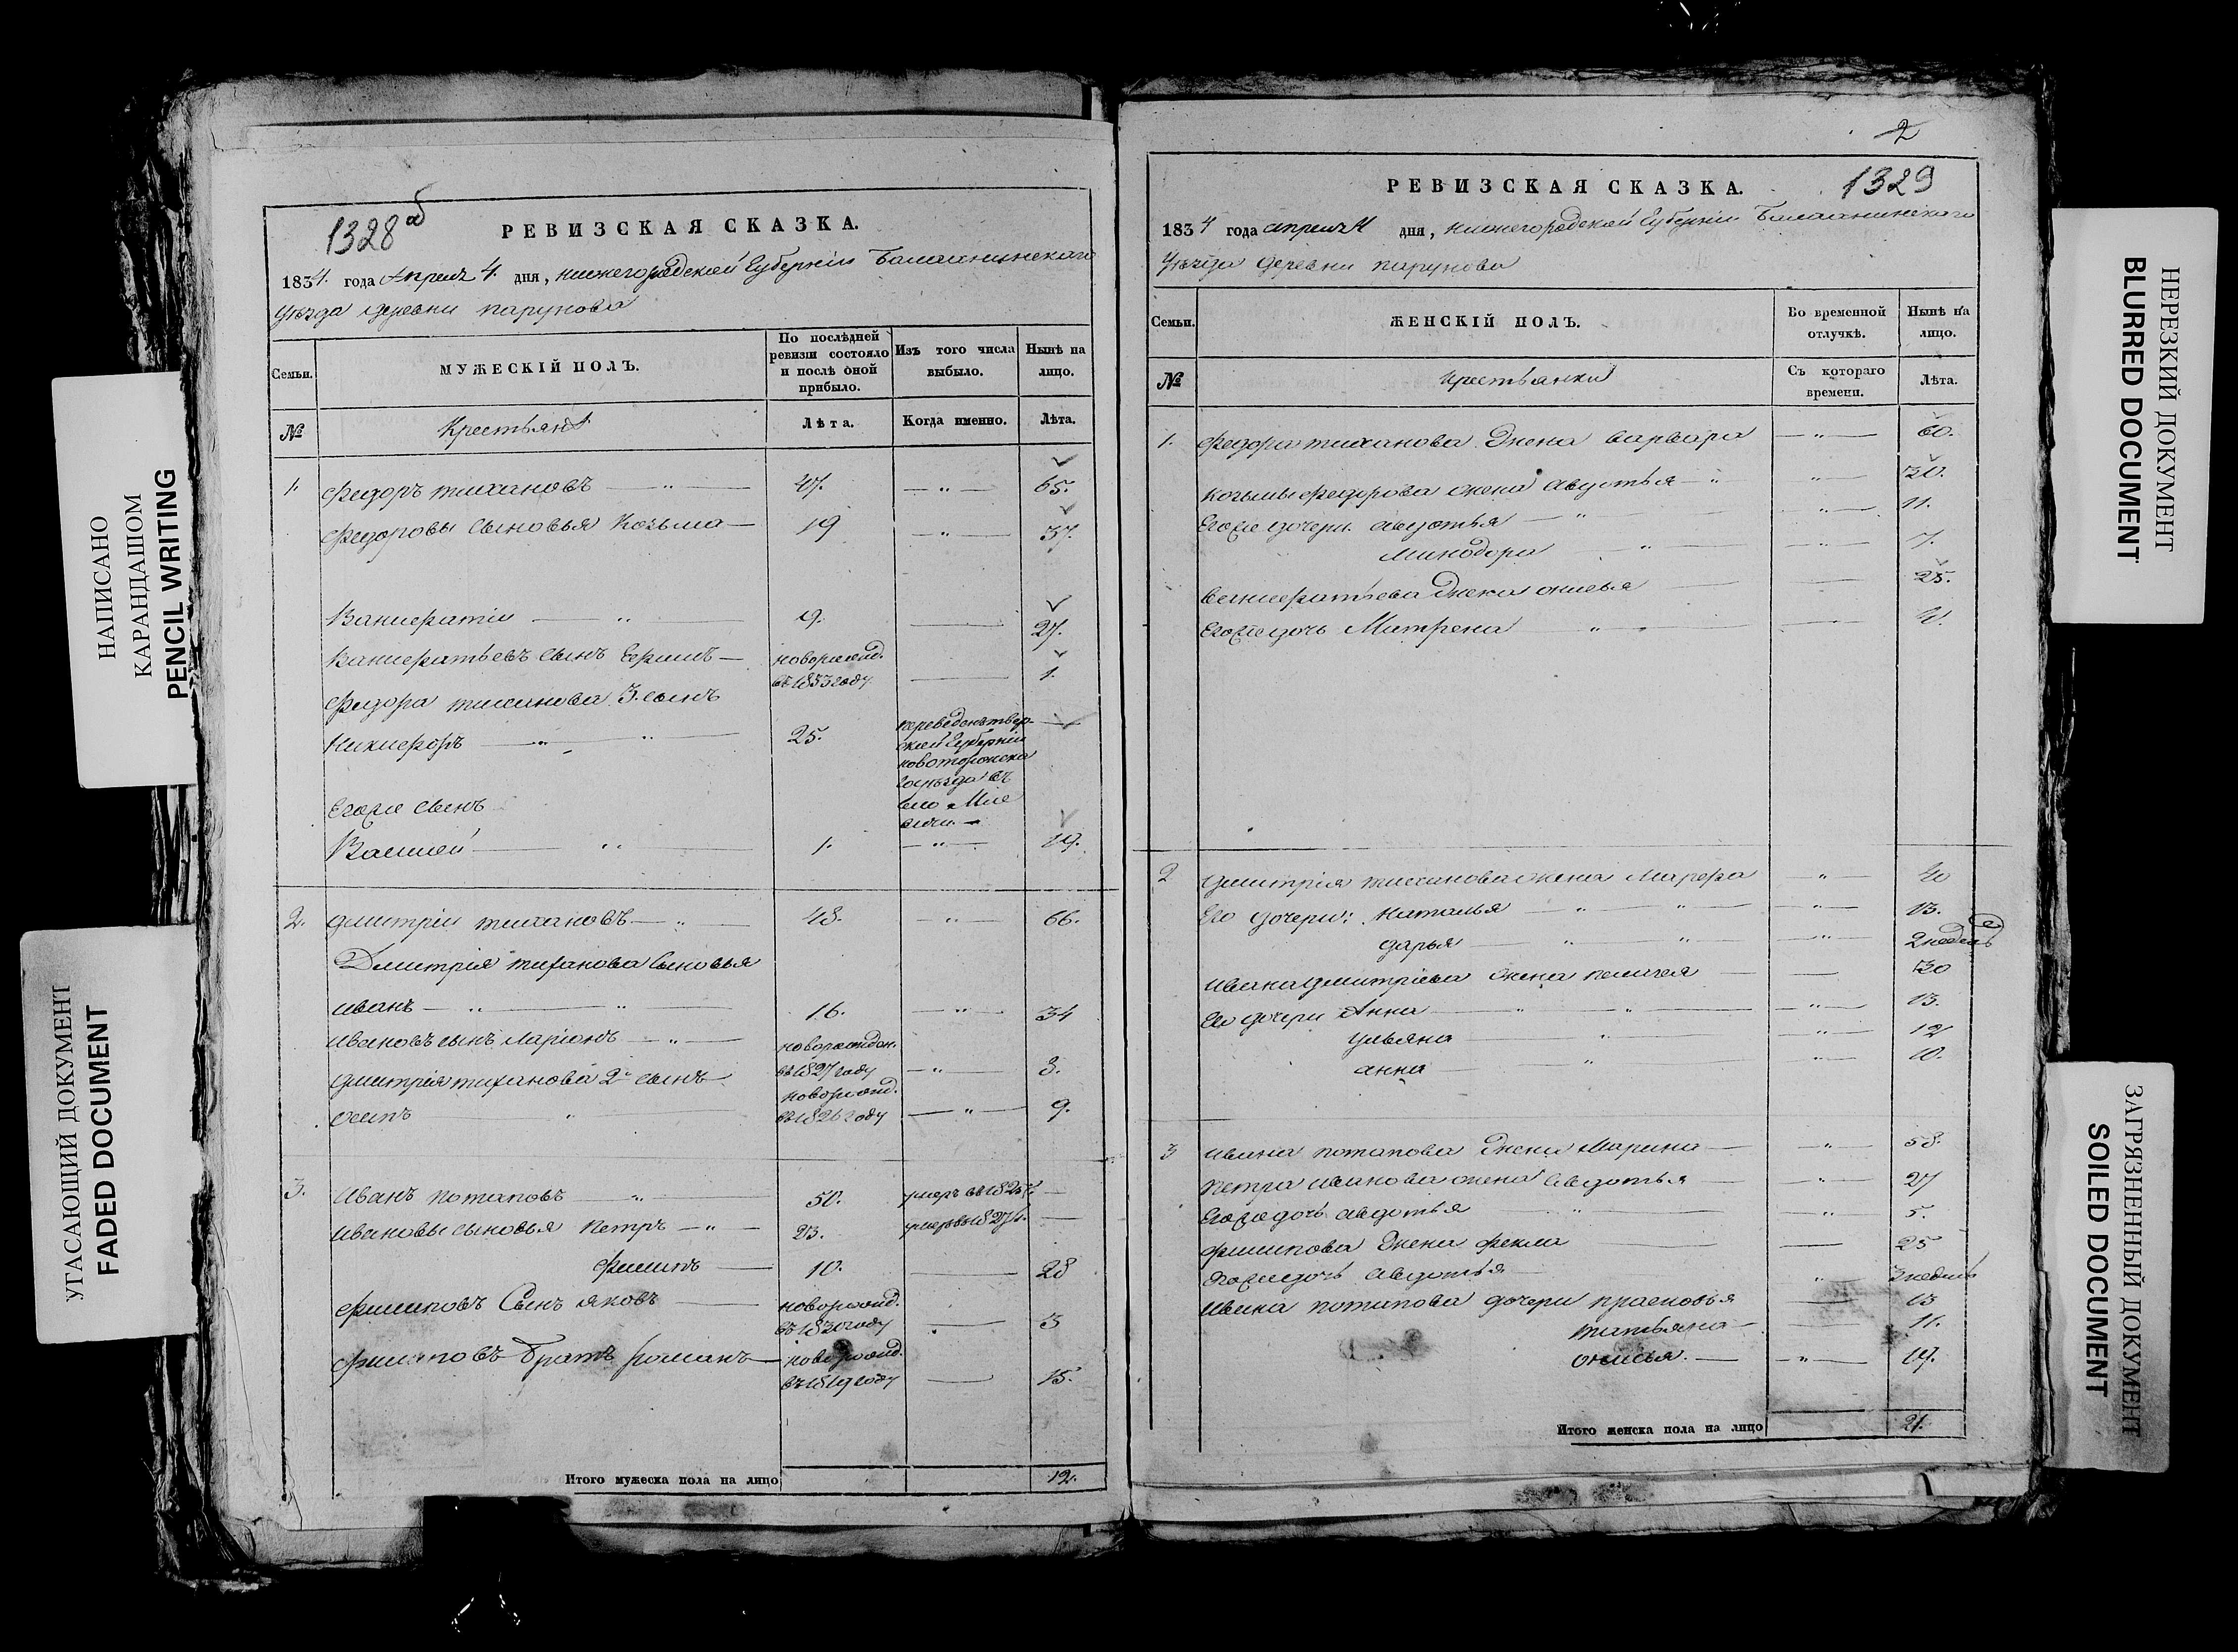 НАПИСАНО
КАРАНДАШОМ
PENCIL WRITING
УГАСАЮЩИЙ ДОКУМЕНТ
FADED DOCUMENT
1328об
РЕВИЗСКАЯ СКАЗКА.
1834. года Апреля 4. дня, нижегородской Губерніи Балахнинскаго
уѣзда деревни парунова
Семьи. МУЖЕСКІЙ ПОЛЪ. По послѣдней ревизіи состояло и послѣ оной прибыло. Изъ того числа выбыло. Нынѣ на лицо.
№ Крестьяне Лѣта. Когда именно. Лѣта.
1. Федоръ тихановъ — „ — 47. — „ — 65.
Федоровы сыновья Козьма — 19 — „ — 37.
Ванифатіи — „ — 9. — 27.
Ванифатьевъ сынъ Ефимъ — новорожд.
въ 1833 году. — 1.
Федора тиханова 3. сынъ
Никифоръ — „ — 25. переведенъ твер-
ской Губерніи
новоторжска
го уѣзда въ
село
Егоже сынъ
Василей — „ — 1. — „ — 19.
2. дмитріи тихановъ — „ — 48. — „ — 66.
Дмитрія тиханова сыновья
иванъ — „ — „ — 16. — „ — 34
ивановъ сынъ Ларіонъ — „ — новорожден.
въ 1827 году — „ — 8.
дмитрія тиханова 2й сынъ — новорожд.
осипъ — „ — въ 1826 году — „ — 9.
3. иванъ потаповъ — „ — 50. умеръ въ 1825 г. —
ивановы сыновья Петръ — „ — 23. умеръ въ 1827 г. —
Филипъ — 10. — 28
Филиповъ Сынъ яковъ — новорожд.
въ 1830 году „ — 3
Филиповъ братъ романъ — новорожд.
въ 1819 году — 15.
Итого мужеска пола на лицо 12.
2
1329
РЕВИЗСКАЯ СКАЗКА.
1834 года апреля 4 дня, нижегородской Губерніи Балахнинскаго
уѣзда деревни парунова
Семьи. ЖЕНСКІЙ ПОЛЪ. Во временной отлучкѣ. Нынѣ на лицо.
№ крестьянки Съ котораго времени. Лѣта.
1. Федора тиханова Жена варвара — „ — 60.
Козьмы федорова жена авдотья — „ — „ — 30.
Егоже дочери авдотья — „ — „ — 11.
Минодора — „ — „ — 7.
ванифатьева Жена — 25.
Егоже дочь Матрена — „ — 4.
2 дмитрія тиханова жена Марфа — „ — 40
Его дочери: наталья — „ — „ — „ — 13.
дарья — „ — „ — „ — 2 недель
ивана дмитріева жена пелагея — 30
Его дочери Анна — „ — „ — „ — 13.
ульяна — „ — „ — 12
анна — „ — „ — 10.
3 ивана потапова Жена Марина — — „ — 58.
петра иванова жена авдотья — — „ — 27
Егоже дочь авдотья — „ — „ — 5.
филипова Жена фекла — 25
Егоже дочь авдотья — „ — 3 недель
ивана потапова дочери прасковья — 13
татьяна — 11.
— „ — 19.
Итого женска пола на лицо 21.
НЕРЕЗКИЙ ДОКУМЕНТ
BLURRED DOCUMENT
ЗАГРЯЗНЕННЫЙ ДОКУМЕНТ
SOILED DOCUMENT